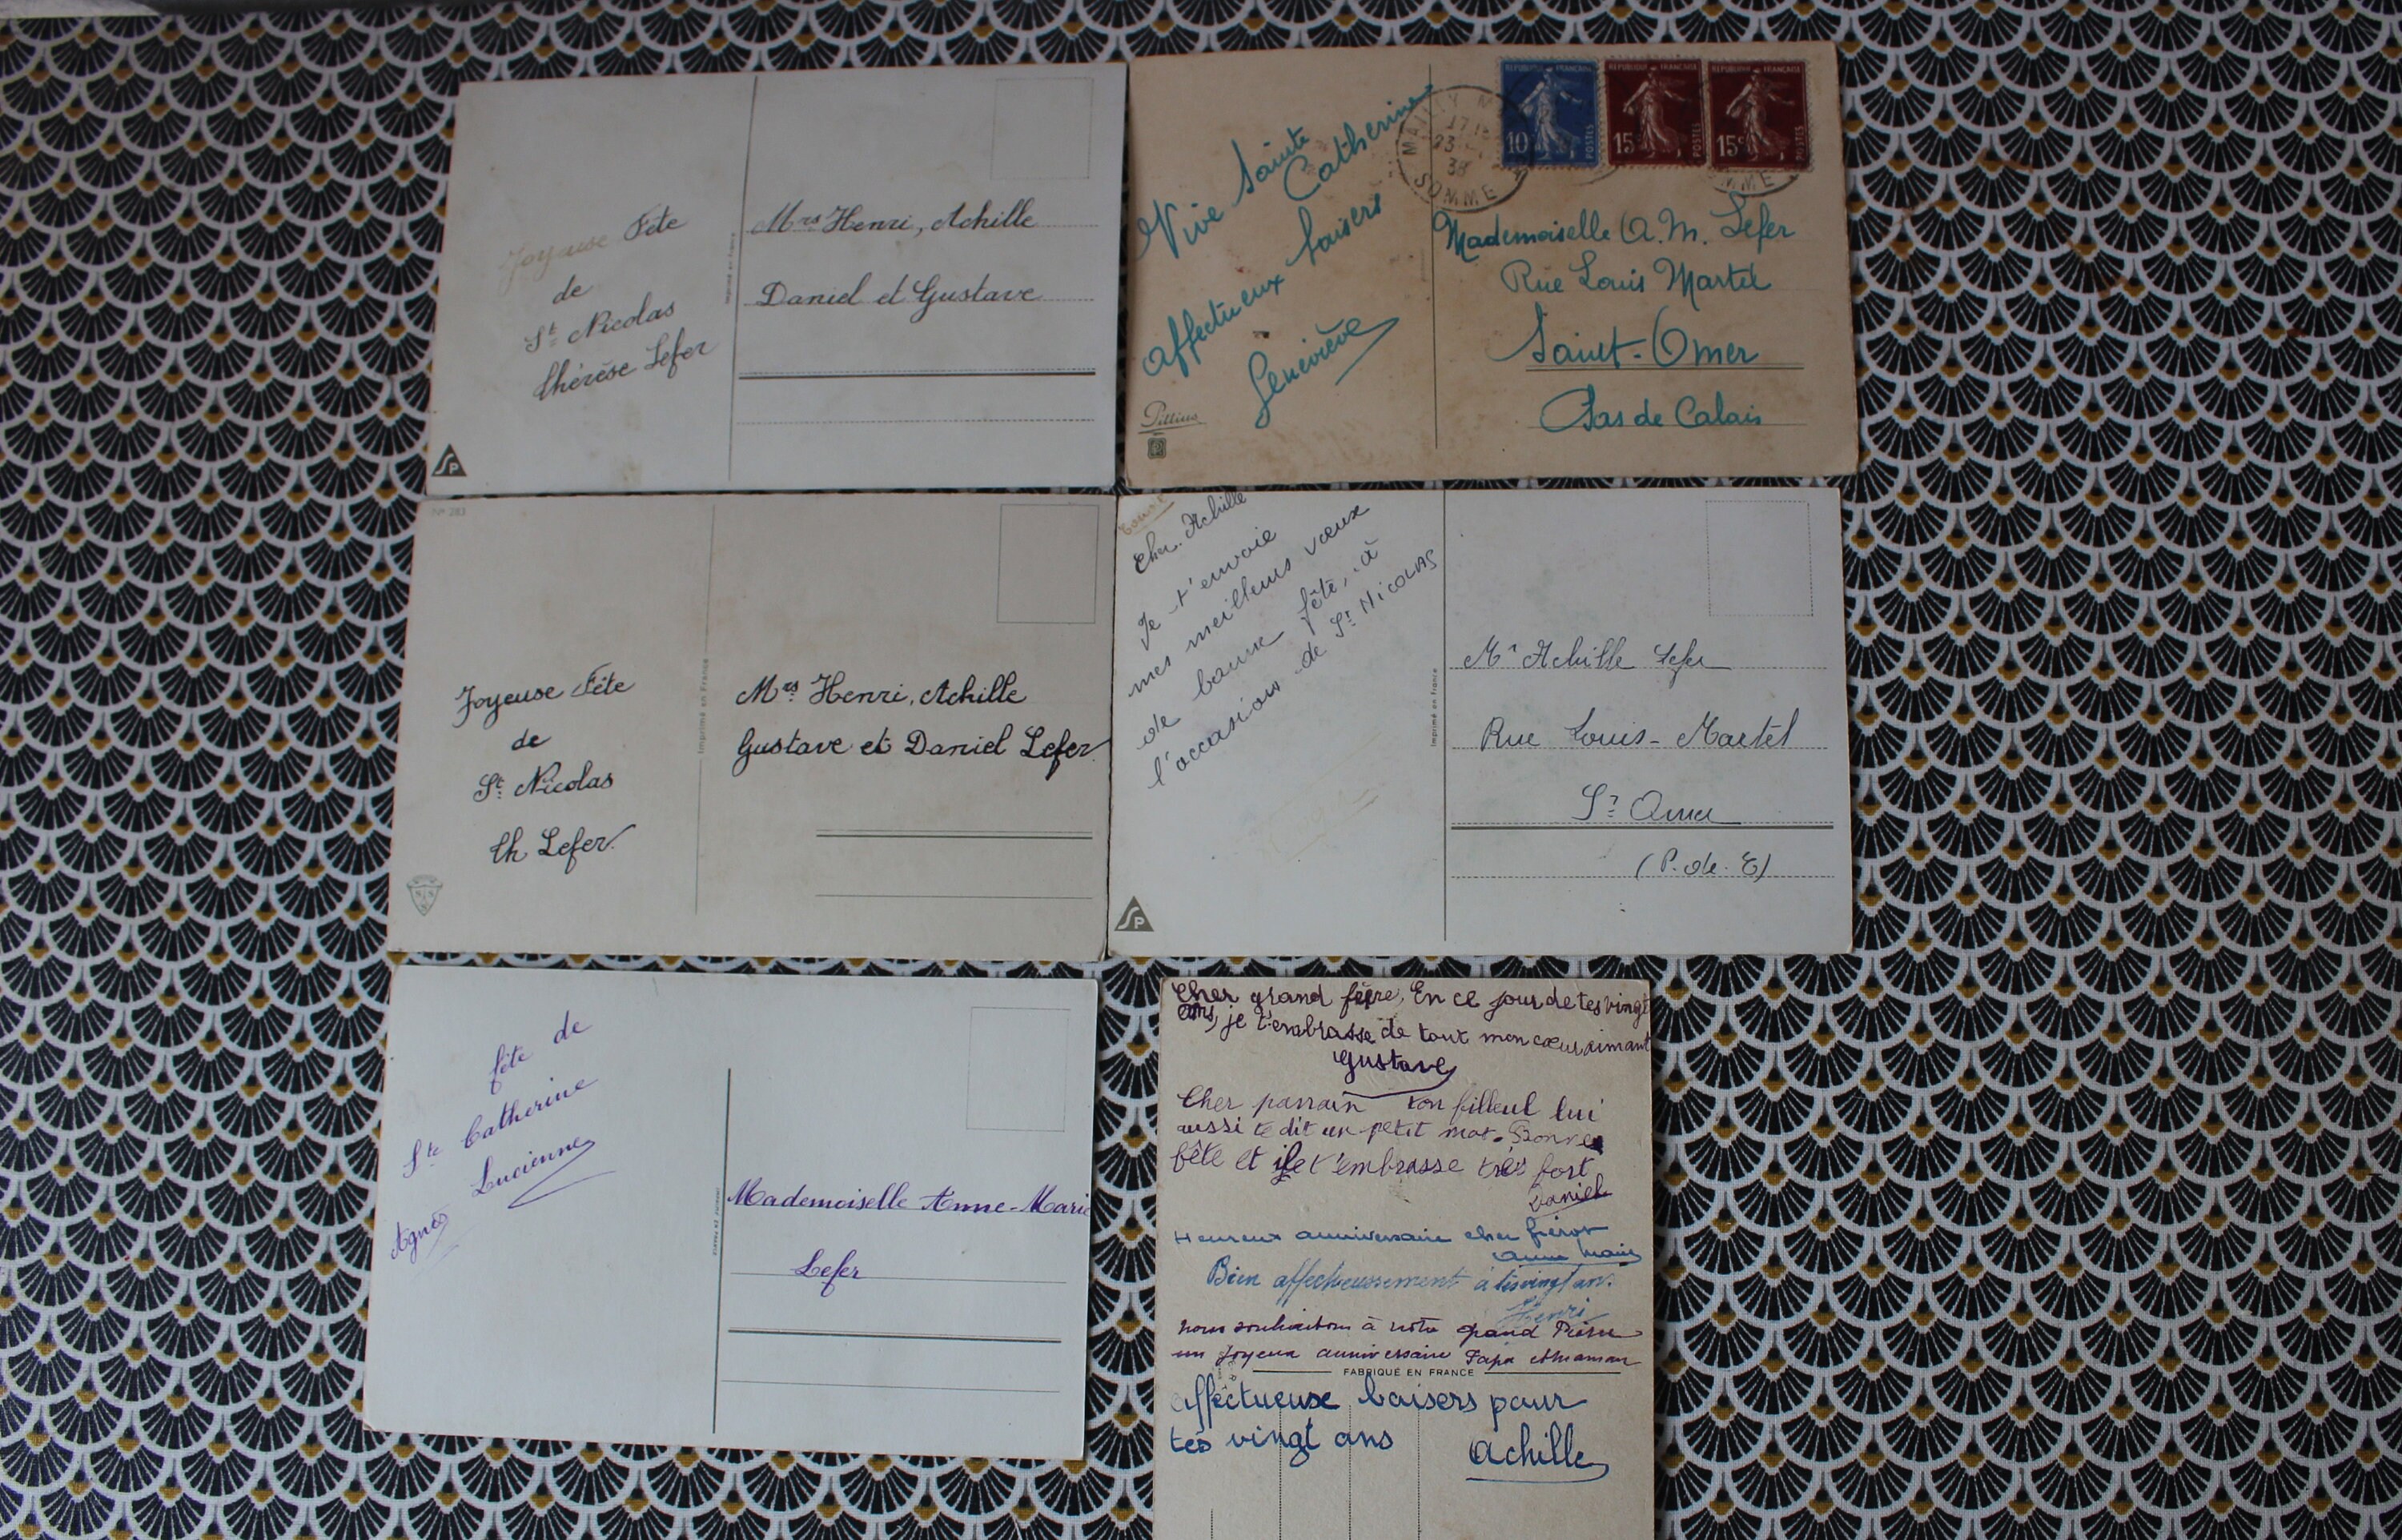 Joyeuse Fête
de
St Nicolas
Thérèse Lefer
Imprimé en France
Mrs Henri, Achille
Daniel et Gustave
SP
Vive Sainte
Catherine
affectueux baisers
Geneviève
MAILLY M
17 15
23
38
SOMME
REPUBLIQUE FRANÇAISE
10
POSTES
REPUBLIQUE FRANÇAISE
15c
POSTES
REPUBLIQUE FRANÇAISE
15c
POSTES
MME
Mademoiselle A. M. Lefer
Rue Louis Martel
Saint-Omer
Pas de Calais
N° 283
Joyeuse Fête
de
St Nicolas
Th Lefer
Imprimé en France
Mrs Henri, Achille
Gustave et Daniel Lefer
Cher Achille
Je t'envoie
mes meilleurs vœux
de bonne fête, à
l'occasion de St NICOLAS
Imprimé en France
Mr Achille Lefer
Rue Louis-Martel
St Omer
(P. de. C)
SP
fête de
Ste Catherine
Lucienne
Agnès
Mademoiselle Anne-Marie
Lefer
Cher grand frère, En ce jour de tes vingt
ans, je t'embrasse de tout mon cœur aimant
Gustave
Cher parrain ton filleul lui
aussi te dit un petit mot. Bonne
fête et je t'embrasse très fort
Daniel
Heureux anniversaire cher frérot
Anne Marie
Bien affectueusement à tes vingt ans.
Henri
nous souhaitons à notre grand Pierre
un joyeux anniversaire Papa et maman
FABRIQUÉ EN FRANCE
affectueuse baisers pour
tes vingt ans
Achille